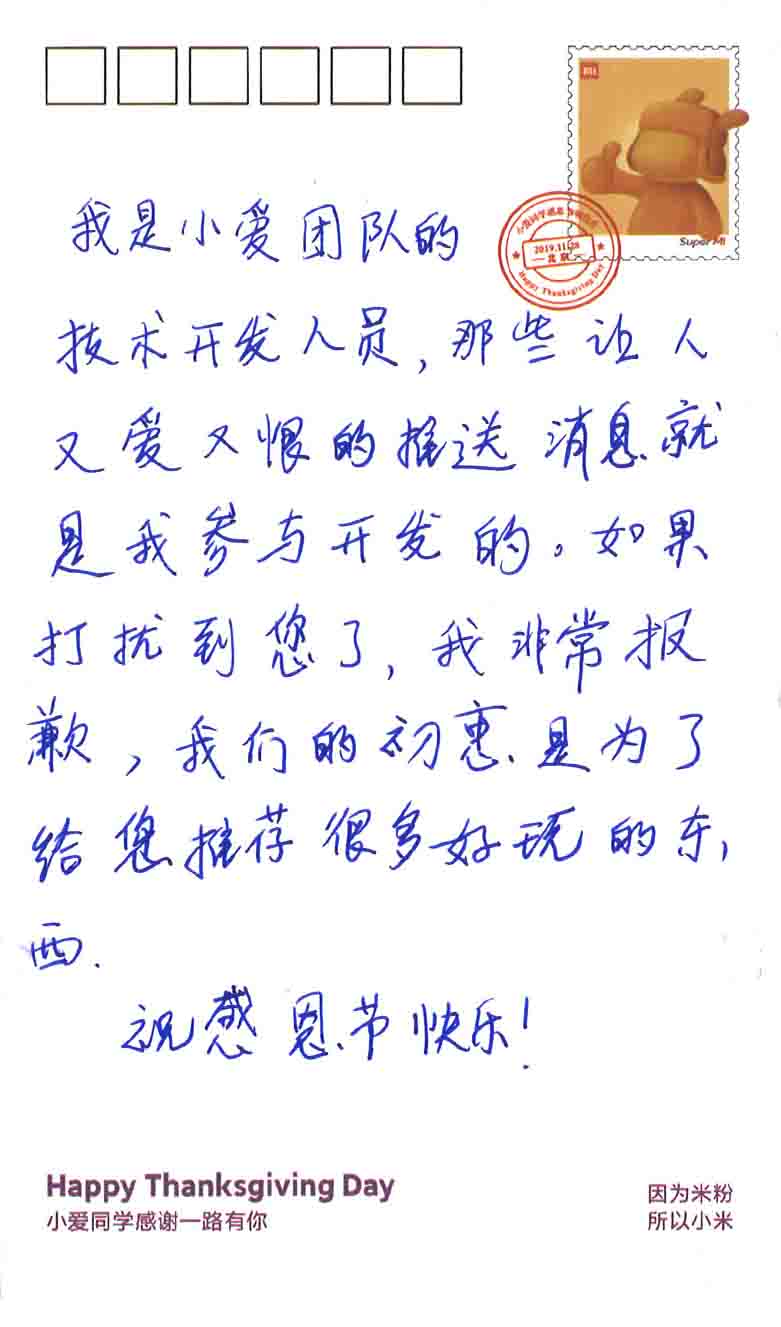 MI
Super Mi
2019.11.28
北京
Happy Thanksgiving Day
我是小爱团队的
技术开发人员,那些让人
又爱又恨的推送消息就
是我参与开发的。如果
打扰到您了,我非常报
歉,我们的初衷是为了
给您推荐很多好玩的东
西.
祝感恩节快乐!
Happy Thanksgiving Day
小爱同学感谢一路有你
因为米粉
所以小米